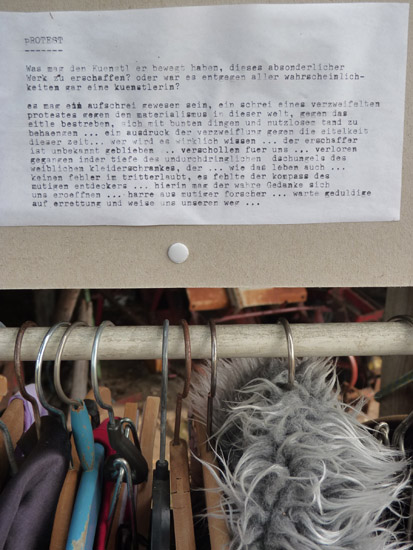 pROTEST
Was mag den Kuenstl er bewegt haben, dieses absonderlicher
Werk zu erschaffen? oder war es entgegen aller wahrscheinlich-
keiten gar eine kuenstlerin?
es mag ein aufschrei gewesen sein, ein schrei eines verzweifelten
protestes gegen den materialismus in dieser welt, gegen das
eitle bestreben, sich mit bunten dingen und nutzlosem tand zu
behaengen ... ein ausdruck der verzweiflung gegen die eitelkeit
dieser zeit... wer wird es wirklich wissen ... der erschaffer
ist unbekannt geblieben .. verschollen fuer uns ... verloren
gegangen inder tiefe des undurchdringlichen dschungels des
weiblichen kleiderschrankes, der ... wie das leben auch ...
keinen fehler im tritterlaubt, es fehlte der kompass des
mutigen entdeckers ... hierin mag der wahre Gedanke sich
uns eroeffnen ... harre aus mutiger forscher ... warte geduldige
auf errettung und weise uns unseren weg ...